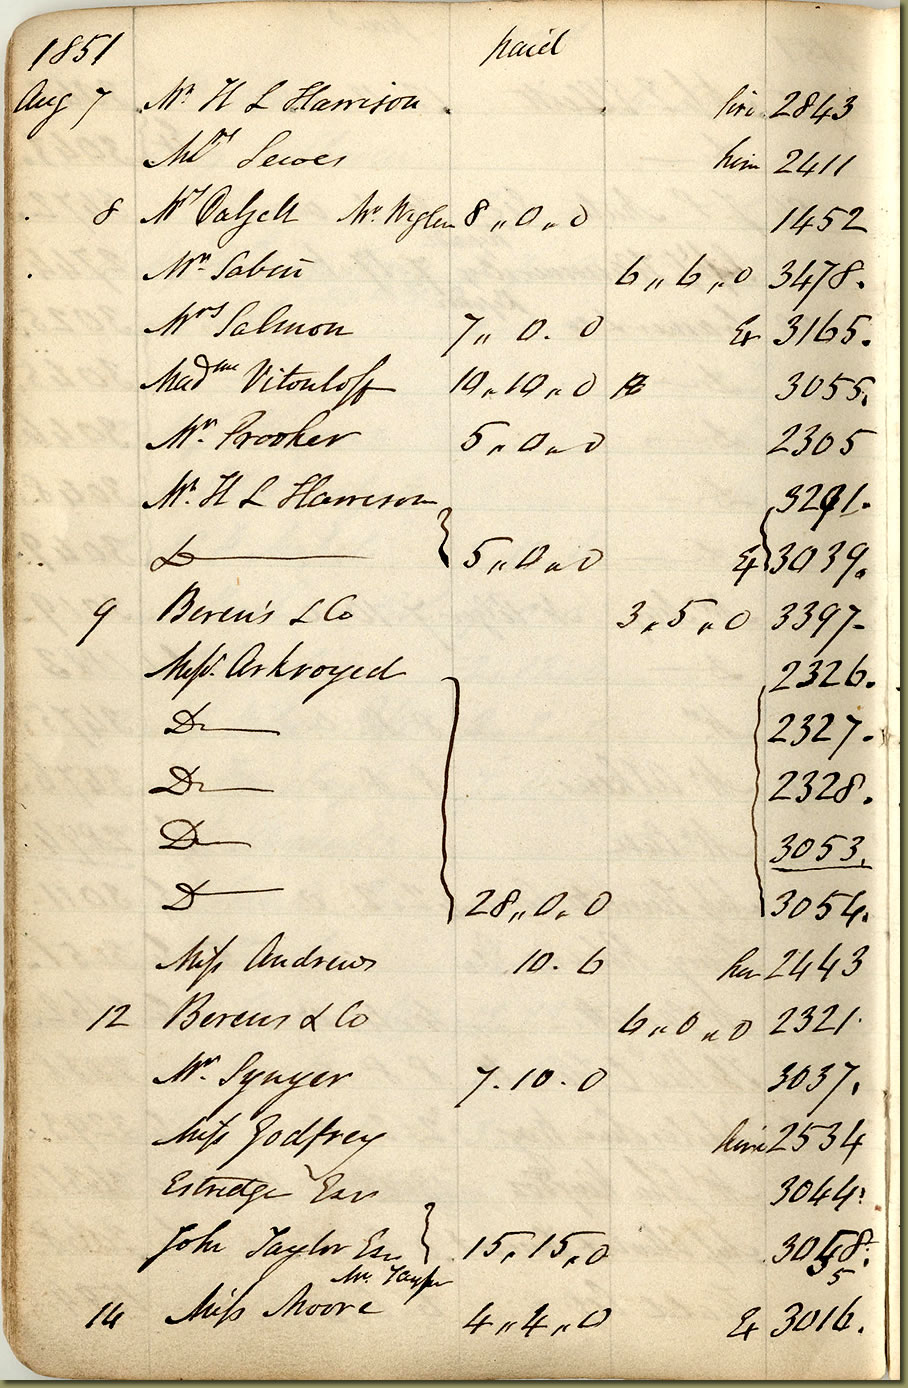 1851 paid
Aug 7 Mr H L Harrison hire 2843
Sewes hire 2411
8 Mrs Dalzell Mr 8,,0,,0 1452
Mr Sabin 6,,6,,0 3478.
Mrs Salmon 7,, 0. 0 Ex 3165.
Madme Vitouloff 10,,10,,0 3055.
Mr. Prooker 5,,0,,0 2305
Mr. H L Harrison 3291.
D 5,,0,,0 Ex 3039.
9 Beren's & Co 3,,5,,0 3397-
Messrs. Arkroyed 2326.
Do 2327.
Do 2328.
Do 3053.
Do 28,,0,,0 3054.
Miss Andrews 10. 6 hire 2443
12 Berens & Co 6,,0,,0 2321.
Mr. Synyer 7.10.0 3037.
Miss Godfrey hire 2534
Estridge Esqr 3044.
John Taylor Esqr 15,,15,,0
Mr. 
14 Miss Moore 4,,4,,0 Ex 3016.